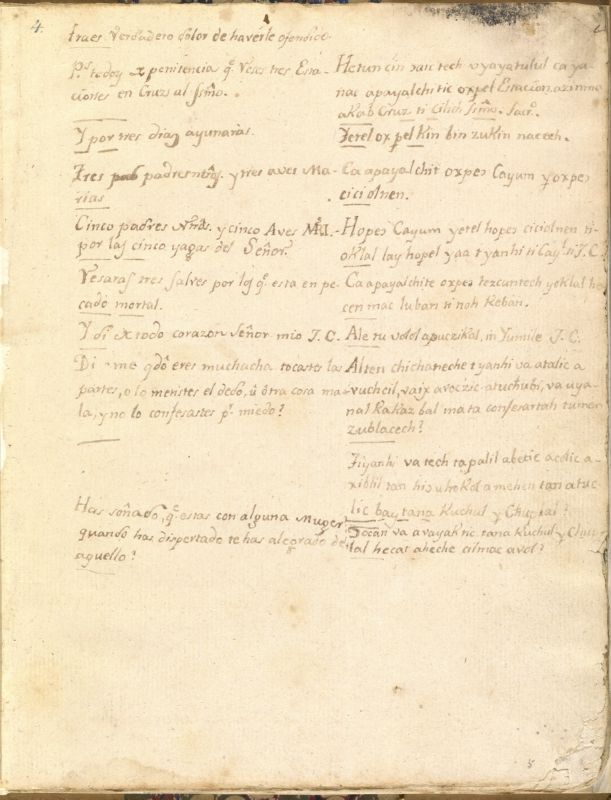 4.
traes verdadero dolor de haverle ofendido.
Ps. te doy x penitencia q.e reses tres Esta-
ciones en Cruz al Ssmo.
Y por tres dias ayunarás.
Tres padresntros. y tres aves Ma-
rias
Cinco padres Ntros. y cinco Aves M.a I.
por las cinco yagas del Señor.
Resaras tres salves por los q.e esta en pe-
cado mortal.
Y di ex todo corazon Señor mio J. C.
Di me qdo eres muchacha tocastes las
partes, o lo metistes el dedo, ú otra cosa ma-
la, y no lo confesastes pr. miedo?
Has soñado, q.e estas con alguna Muger
quando has dispertado te has alegrado de
aquello?
Hetun cin tech u yayatulul ca ya-
nac apayalchi tic oxpel Estacion
akab Cruz ti Cilich Ssmo. Sacr.o
Yetel oxpel Kin bin zukinnacech.
Ca apayalchit oxpez Cayum y oxpez
ciciolnen.
Hopez Cayum yetel hopez ciciolnen ti-
oklal lay hopel yaa t yanhi ti Cayl. ti J. C.
Ca apayalchite oxpez tezcuntech yoklal he-
cen mac luban ti noh Keban.
Ale tu uolol apuczikal, in Yumile J. C.
Alten chichaneche t yanhi va atalic a
vucheil, vaix avoczic atuchubi, va uya-
nal Kakaz bal mata confesartah tumen
zublacech?
Ziyanhi va tech tapalil abetic acolic a-
xiblil tan hizuhokol amehen tan atuc-
lic bay tana Kuchul y Chuplal?
Tocan va avayaktic tana Kuchul y Chup-
lal hecax aheche cilmac avol?
5